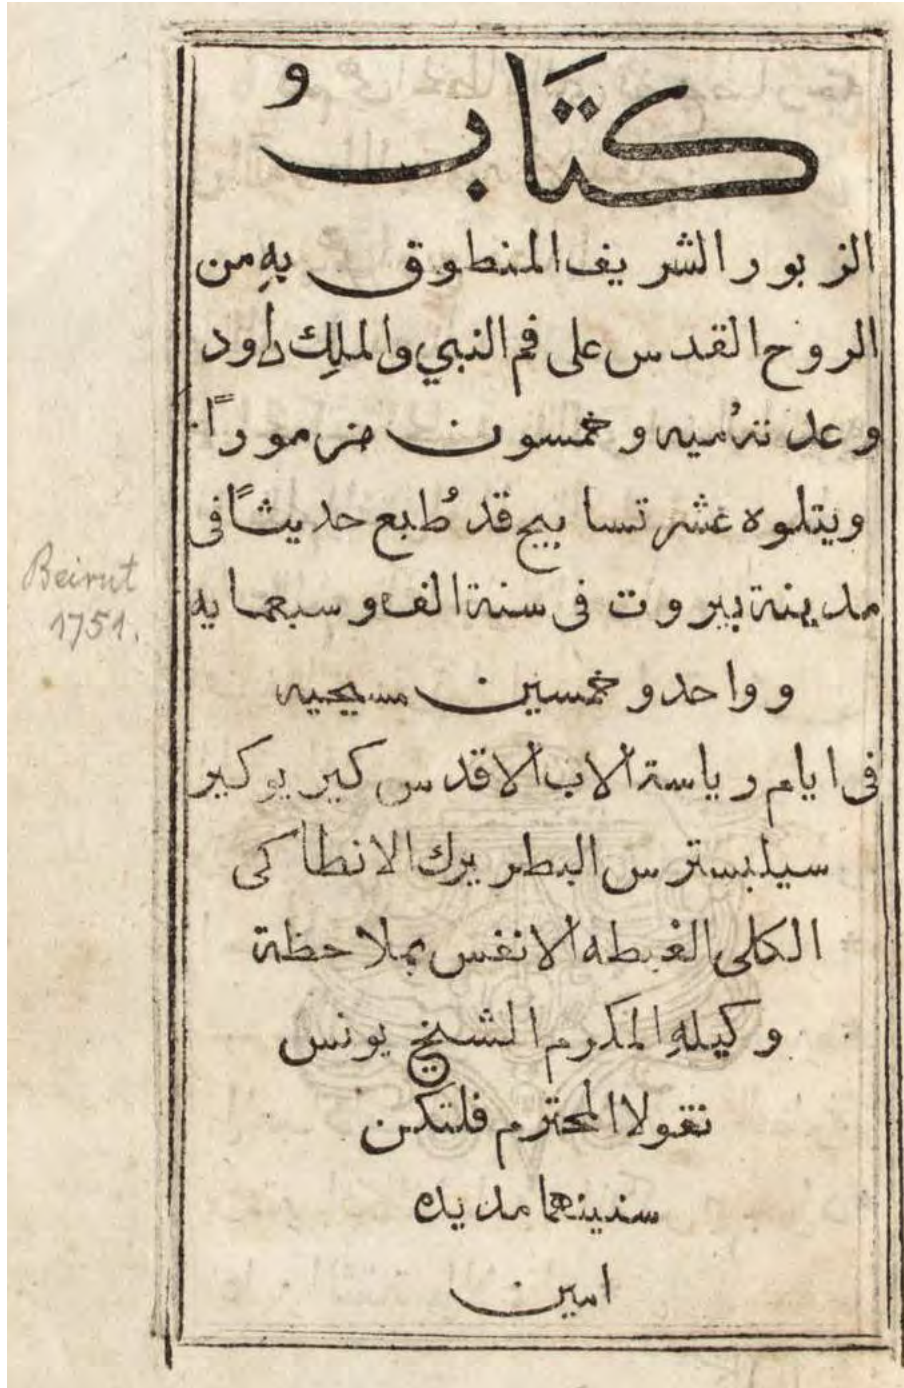 كتَابُ
الزبور الشريف المنطوق بهِ من
الروح القدس على فم النبي والملِك داود
وعدتهُ ميه وخمسون مزموراً
ويتلوه عشر تسابيح قد طُبع حديثاً فى
مدينة بيروت فى سنة الف وسبعمايه
وواحد وخمسين مسيحيه
فى ايام رياسة الاب الاقدس كير يوكير
سيلبسترس البطريرك الانطاكى
الكلى الغبطه الانفس بملاحظة
وكيلهِ المكرم الشيخ يونس
نقولا المحترم فلتكن
سنينهما مديده
امين
Beirut
1751.